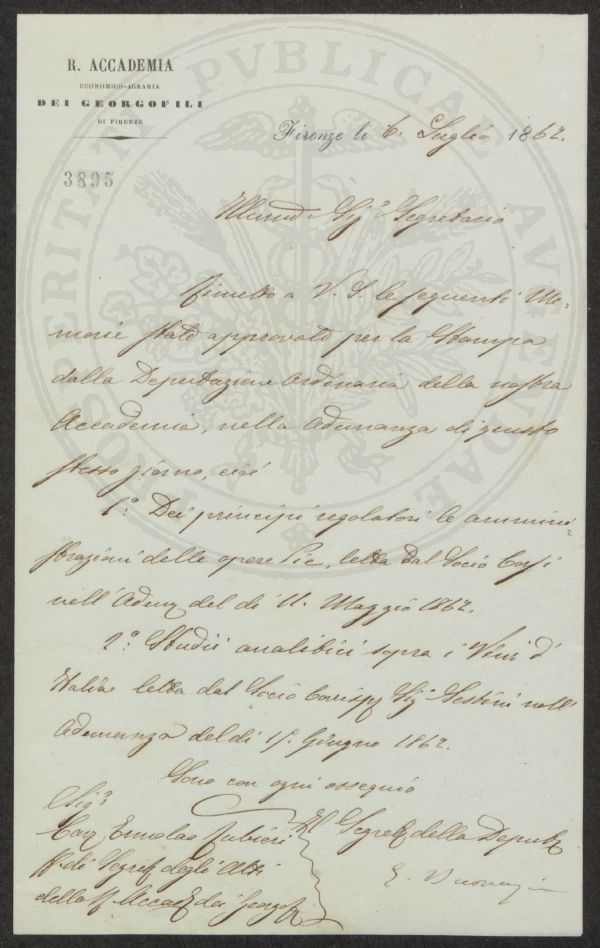 R. ACCADEMIA
ECONOMICO-AGRARIA
DEI GEORGOFILI
DI FIRENZE
Firenze li 6. Luglio 1862.
3895
PROSPERITATI PVBLICAE AVGENDAE
Sigr Segretario
Rimetto a V. S. le seguenti Me-
morie state approvate per la Stampa
dalla Deputazione Ordinaria della nostra
Accademia, nella Adunanza di questo
stesso giorno, cioè
1.o Dei principj regolatori le ammini-
strazioni delle opere Pie, letta dal Socio Corsi
nell'Adunz del dì 11. Maggio 1862.
2.o Studii analitici sopra i Vini d'
Italia letta dal Socio Corrisp Sigr Sestini nell'
Adunanza del dì 15. Giugno 1862.
Sono con ogni ossequio
Sigr
Cav Ermolao Rubieri
Il Segret della Deput
di Segret degli Atti
della R Accad dei Georgof